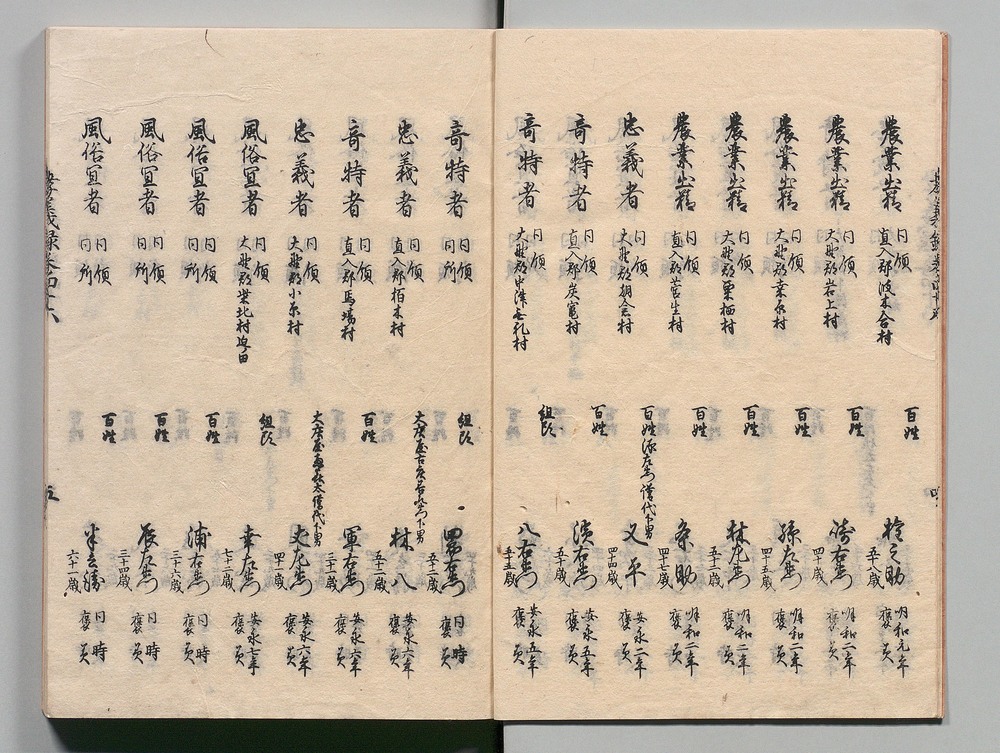 農業出精 同領 直入郡波木合村 百姓 五十八歳 明和元年 褒美
農業出精 同領 大野郡岩上村 百姓 右衛門 四十歳 明和二年 褒美
農業出精 同領 大野郡幸永村 百姓 孫左衛門 四十五歳 明和二年 褒美
農業出精 同領 大野郡栗栖村 百姓 林左衛門 五十三歳 明和二年 褒美
農業出精 同領 直入郡菅生村 百姓 条助 四十七歳 明和二年 褒美
忠義者 同領 大野郡朝倉村 百姓源左衛門譜代下男 又平 四十四歳 安永二年 褒美
奇特者 同領 直入郡炭竃村 百姓 濱右衛門 五十歳 安永五年 褒美
奇特者 同領 大野郡中津無礼村 組頭 八右衛門 五十五歳 安永五年 褒美
奇特者 同領 同所 組頭 右衛門 五十一歳 同時 褒美
忠義者 同領 直入郡栢木村 下男 林八 五十二歳 安永六年 褒美
奇特者 同領 直入郡馬場村 百姓 軍右衛門 三十一歳 安永六年 褒美
忠義者 同領 大野郡小尓村 譜代下男 丈左衛門 四十一歳 安永六年 褒美
風俗宜者 同領 大野郡柴北村迫田 組頭 幸左衛門 七十二歳 安永七年 褒美
風俗宜者 同領 同所 百姓 浦右衛門 三十六歳 同時 褒美
風俗宜者 同領 同所 百姓 辰左衛門 三十四歳 同時 褒美
風俗宜者 同領 同所 百姓 半 六十一歳 同時 褒美
孝義録巻四十六
五